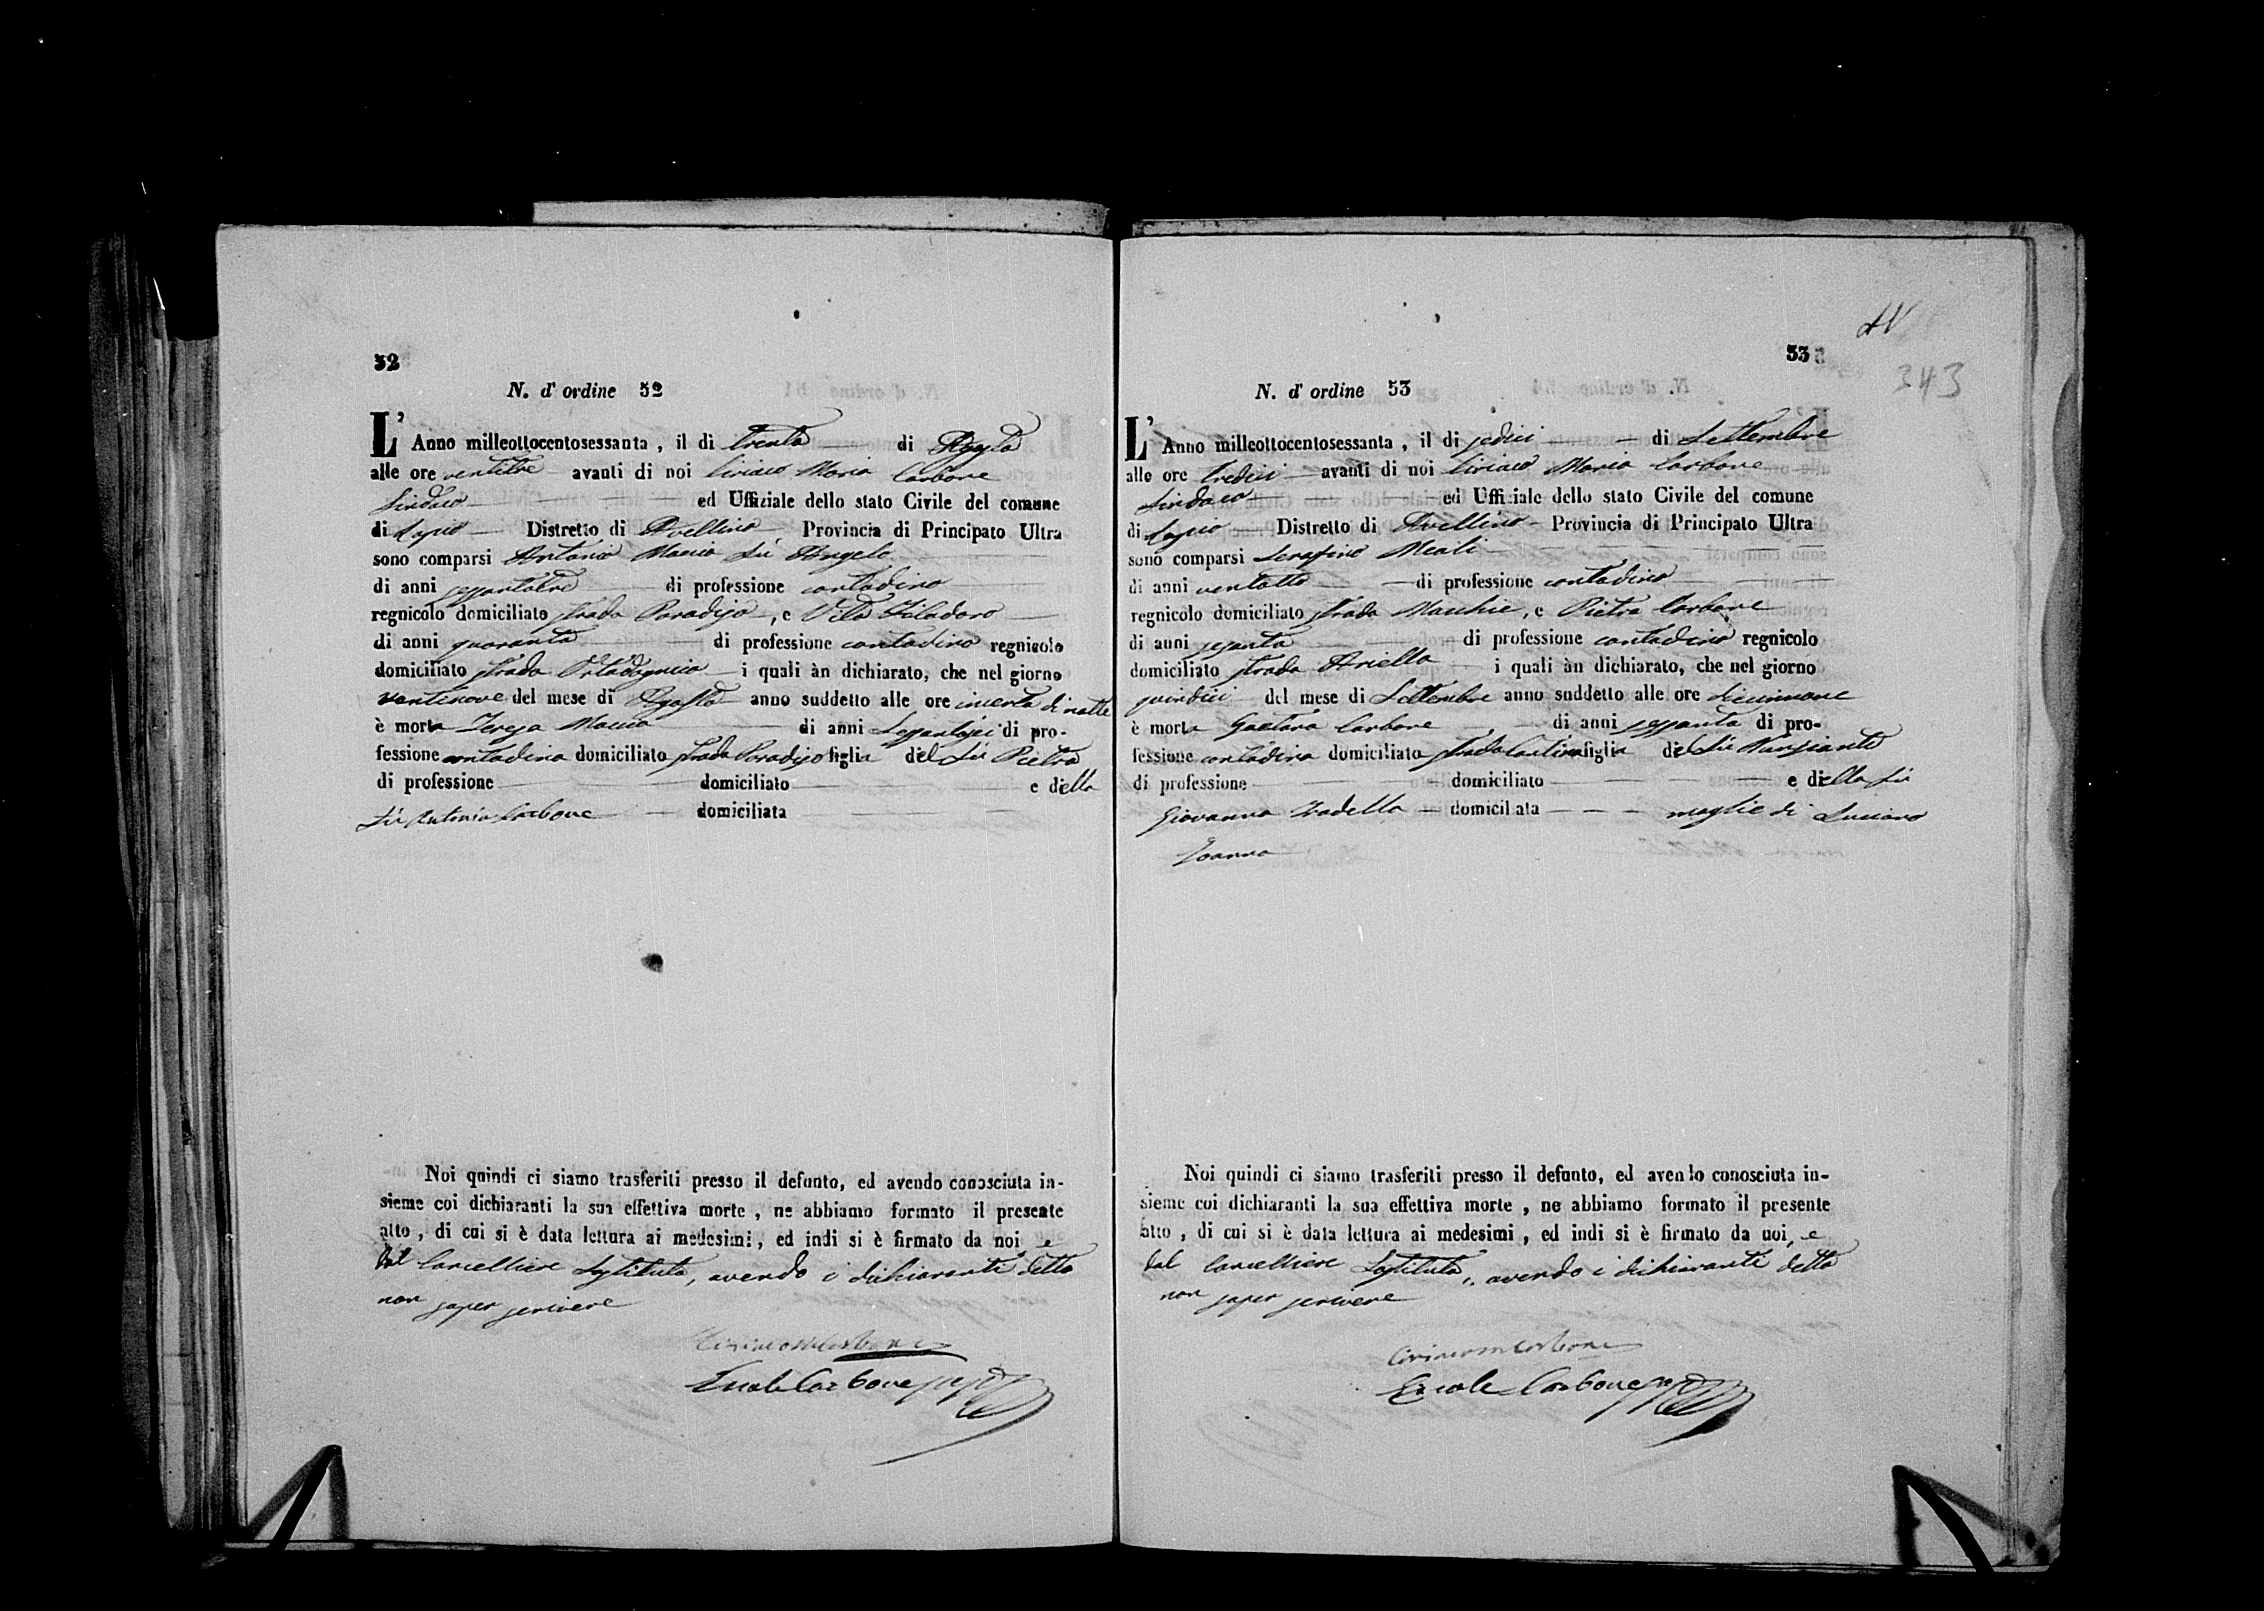 52
N. d'ordine 52
L'Anno milleottocentosessanta, il di trenta di Agosto
alle ore ventitre avanti di noi Ciriaco Maria Carbone
Sindaco ed Uffiziale dello stato Civile del comune
di Lapio Distretto di Avellino Provincia di Principato Ultra
sono comparsi Antonio Maria fu Angelo
di anni di professione contadino
regnicolo domiciliato strada Paradiso, e Vito Filadoro
di anni quaranta di professione contadino regnicolo
domiciliato strada i quali àn dichiarato, che nel giorno
ventinove del mese di Agosto anno suddetto alle ore incerta di notte
è morta Teresa di anni sessantasei di pro-
fessione contadina domiciliato strada Paradiso figlia del fu Pietro
di professione domiciliato e della
fu Antonia Carbone domiciliata
Noi quindi ci siamo trasferiti presso il defunto, ed avendo conosciuta in-
sieme coi dichiaranti la sua effettiva morte, ne abbiamo formato il presente
atto, di cui si è data lettura ai medesimi, ed indi si è firmato da noi e
dal Cancelliere Sostituto, avendo i dichiaranti detto
non saper scrivere
Ciriaco M Carbone
Ercole Carbone
53
343
N. d'ordine 53
L'Anno milleottocentosessanta, il di sedici di Settembre
alle ore tredici avanti di noi Ciriaco Maria Carbone
Sindaco ed Uffiziale dello stato Civile del comune
di Lapio Distretto di Avellino Provincia di Principato Ultra
sono comparsi Serafino Meoli
di anni ventotto di professione contadino
regnicolo domiciliato strada Macchie, e Pietro Carbone
di anni sessanta di professione contadino regnicolo
domiciliato strada Ariella i quali àn dichiarato, che nel giorno
quindici del mese di Settembre anno suddetto alle ore diecinnove
è morta Gaetana Carbone di anni sessanta di pro-
fessione contadina domiciliato strada figlia del fu
di professione domiciliato e della fu
Giovanna domiciliata moglie di Luciano
Ioanna
Noi quindi ci siamo trasferiti presso il defunto, ed avendo conosciuta in-
sieme coi dichiaranti la sua effettiva morte, ne abbiamo formato il presente
atto, di cui si è data lettura ai medesimi, ed indi si è firmato da noi, e
dal Cancelliere Sostituto, avendo i dichiaranti detto
non saper scrivere
Ciriaco M Carbone
Ercole Carbone